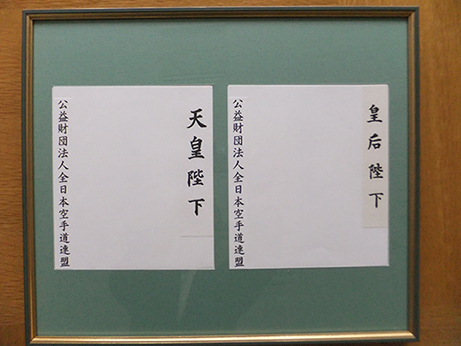 皇后陛下
公益財団法人全日本空手道連盟
天皇陛下
公益財団法人全日本空手道連盟